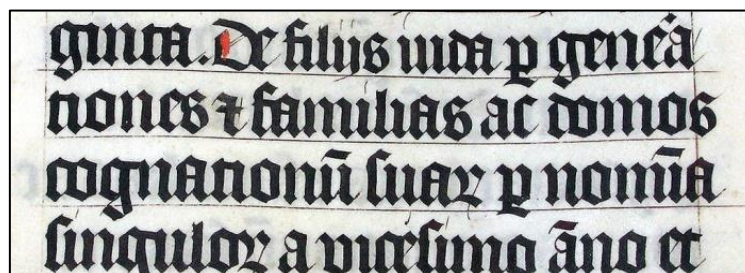 ginta. De filijs iuda ꝑ gen̄ea
tiones ⁊ familias ac domos
cognationū suaꝝ ꝑ nomīa
singuloꝝ a vicesimo āno et